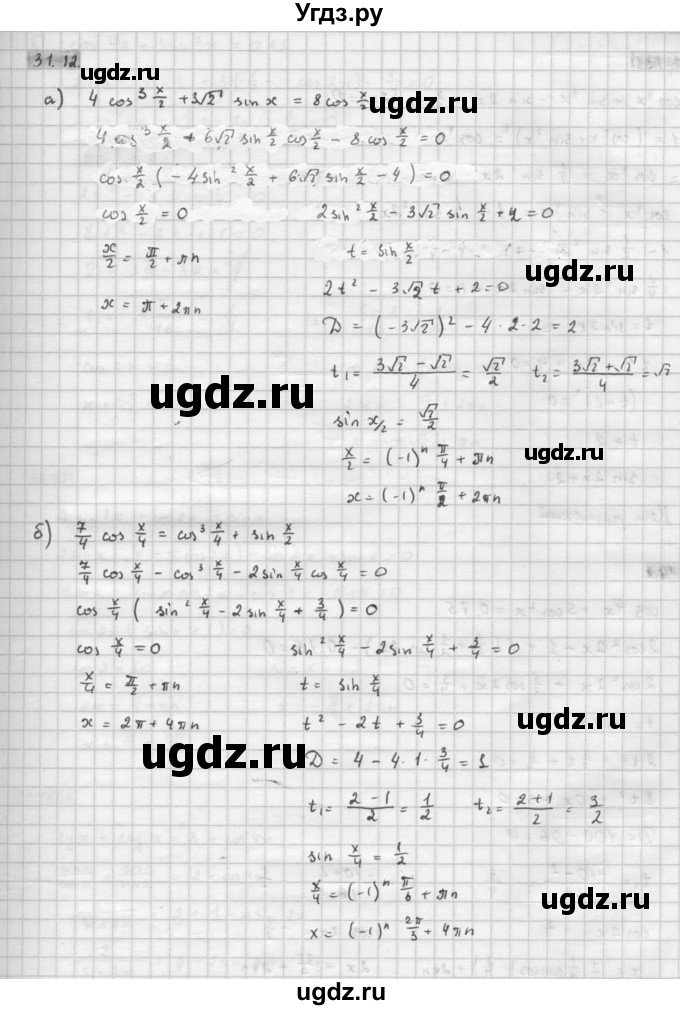 Угдз.ру
31.12.
а) 4 cos³ x/2 + 3√2 sin x = 8 cos x/2
4 cos³ x/2 + 6√2 sin x/2 cos x/2 − 8 cos x/2 = 0
cos x/2 (−4 sin² x/2 + 6√2 sin x/2 − 4) = 0
cos x/2 = 0
2 sin² x/2 − 3√2 sin x/2 + 2 = 0
x/2 = π/2 + πn
t = sin x/2
ugdz.ru
x = π + 2πn
2t² − 3√2 t + 2 = 0
D = (−3√2)² − 4·2·2 = 2
ugdz.ru
t₁ = (3√2 − √2)/4 = √2/2 t₂ = (3√2 + √2)/4 = √2
sin x/2 = √2/2
x/2 = (−1)ⁿ π/4 + πn
ugdz.ru
x = (−1)ⁿ π/2 + 2πn
б) 7/4 cos x/4 = cos³ x/4 + sin x/2
7/4 cos x/4 − cos³ x/4 − 2 sin x/4 cos x/4 = 0
cos x/4 (sin² x/4 − 2 sin x/4 + 3/4) = 0
cos x/4 = 0
sin² x/4 − 2 sin x/4 + 3/4 = 0
x/4 = π/2 + πn
t = sin x/4
x = 2π + 4πn
t² − 2t + 3/4 = 0
ugdz.ru
ugdz.ru
D = 4 − 4·1·3/4 = 1
t₁ = (2 − 1)/2 = 1/2 t₂ = (2 + 1)/2 = 3/2
sin x/4 = 1/2
x/4 = (−1)ⁿ π/6 + πn
ugdz.ru
x = (−1)ⁿ 2π/3 + 4πn
ugdz.ru